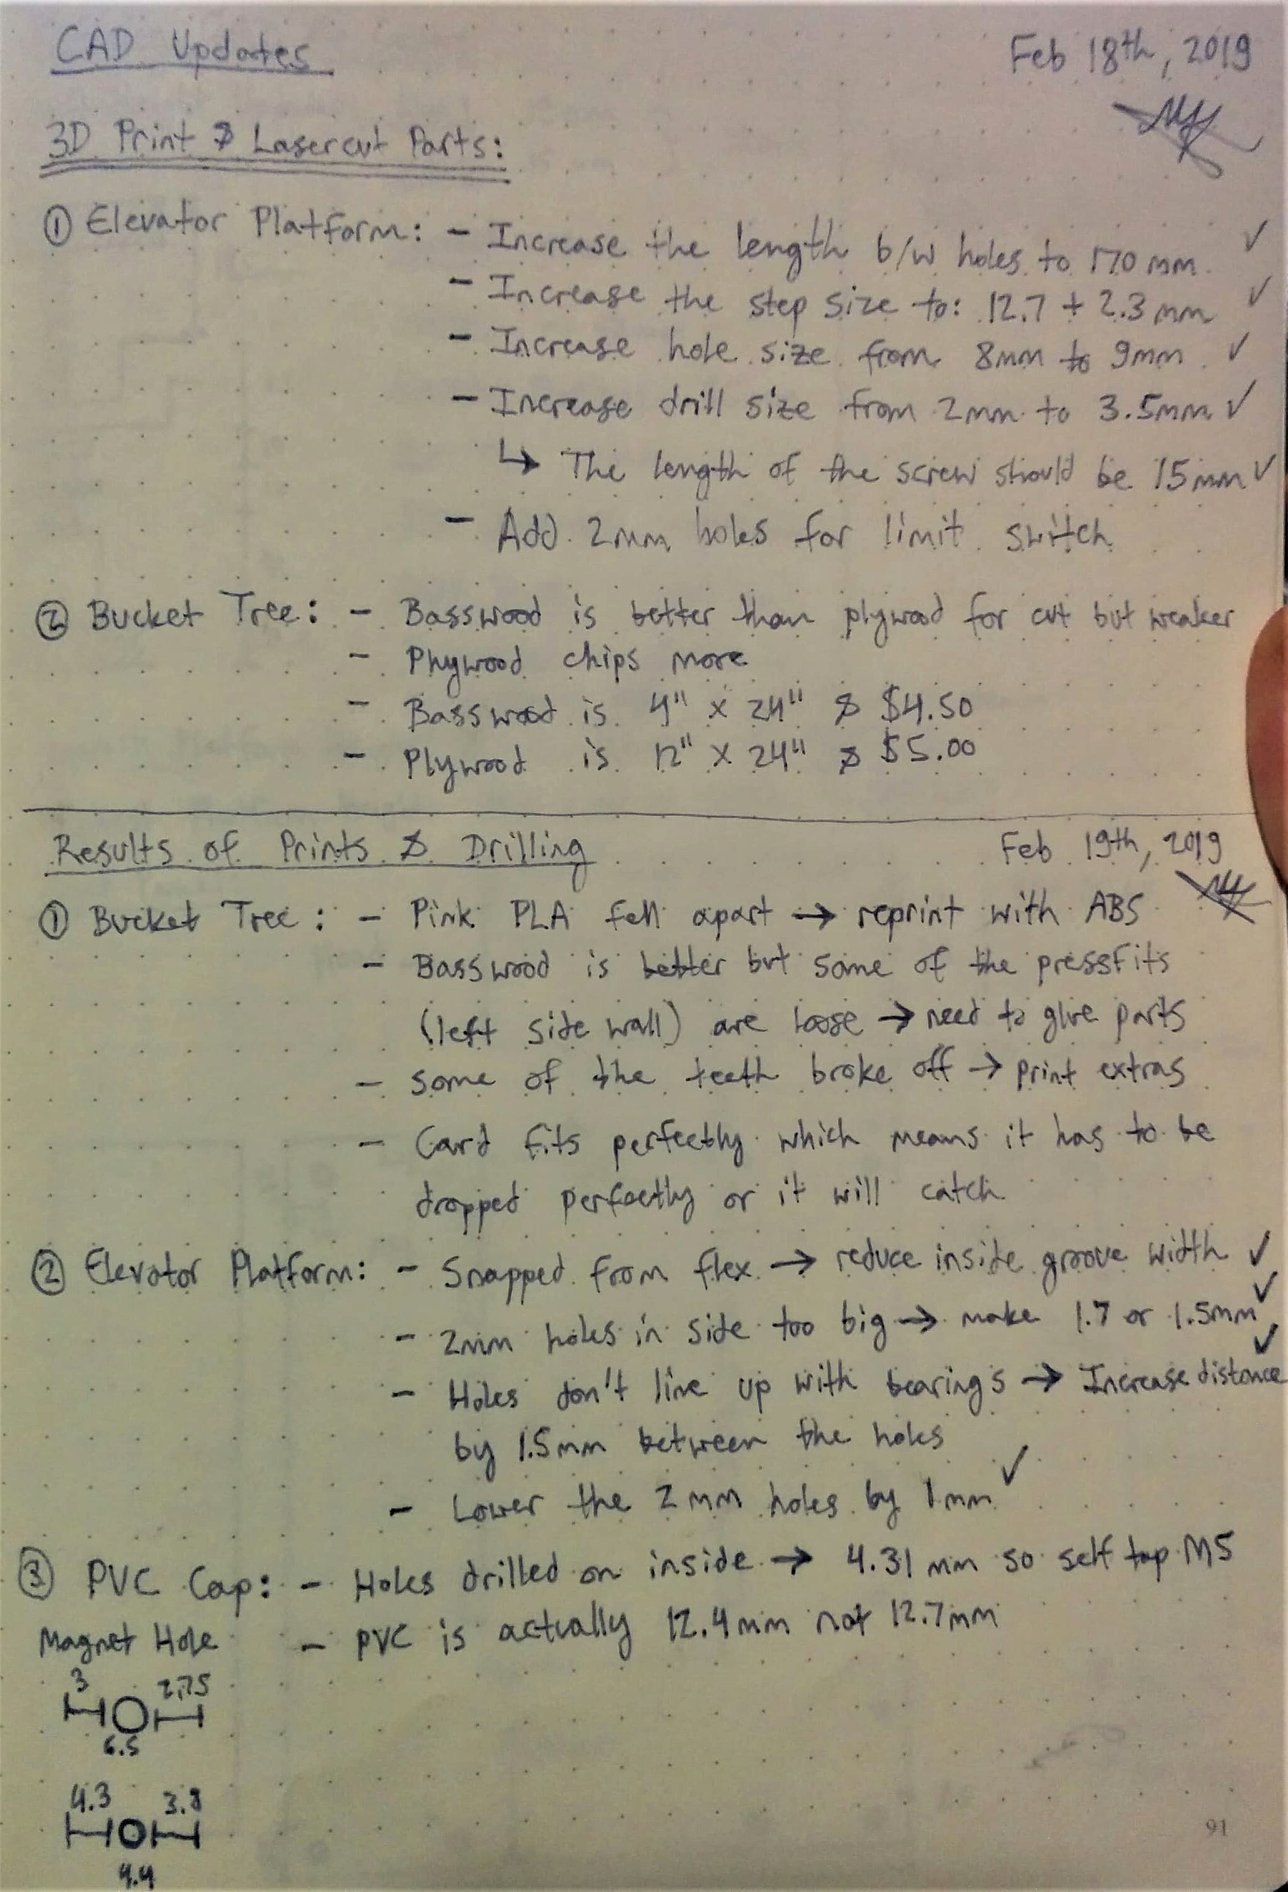 CAD Updates Feb 18th, 2019
3D Print & Lasercut Parts:
① Elevator Platform: - Increase the length b/w holes to 170 mm ✓
- Increase the step size to: 12.7 + 2.3 mm ✓
- Increase hole size from 8mm to 9mm ✓
- Increase drill size from 2mm to 3.5mm ✓
↳ The length of the screw should be 15mm ✓
- Add 2mm holes for limit switch
② Bucket Tree: - Basswood is better than plywood for cut but weaker
- Plywood chips more
- Basswood is 4" x 24" & $4.50
- Plywood is 12" x 24" & $5.00
Results of Prints & Drilling Feb 19th, 2019
① Bucket Tree: - Pink PLA fell apart → reprint with ABS
- Basswood is better but some of the pressfits
(left side wall) are loose → need to glue parts
- some of the teeth broke off → print extras
- Card fits perfectly which means it has to be
dropped perfectly or it will catch
② Elevator Platform: - Snapped from flex → reduce inside groove width ✓
- 2mm holes in side too big → make 1.7 or 1.5mm ✓
- Holes don't line up with bearings → Increase distance ✓
by 1.5mm between the holes
- Lower the 2mm holes by 1mm ✓
③ PVC Cap: - Holes drilled on inside → 4.31 mm so self tap M5
Magnet Hole - PVC is actually 12.4mm not 12.7mm
3 2.75
6.5
4.3 3.8
4.4
91